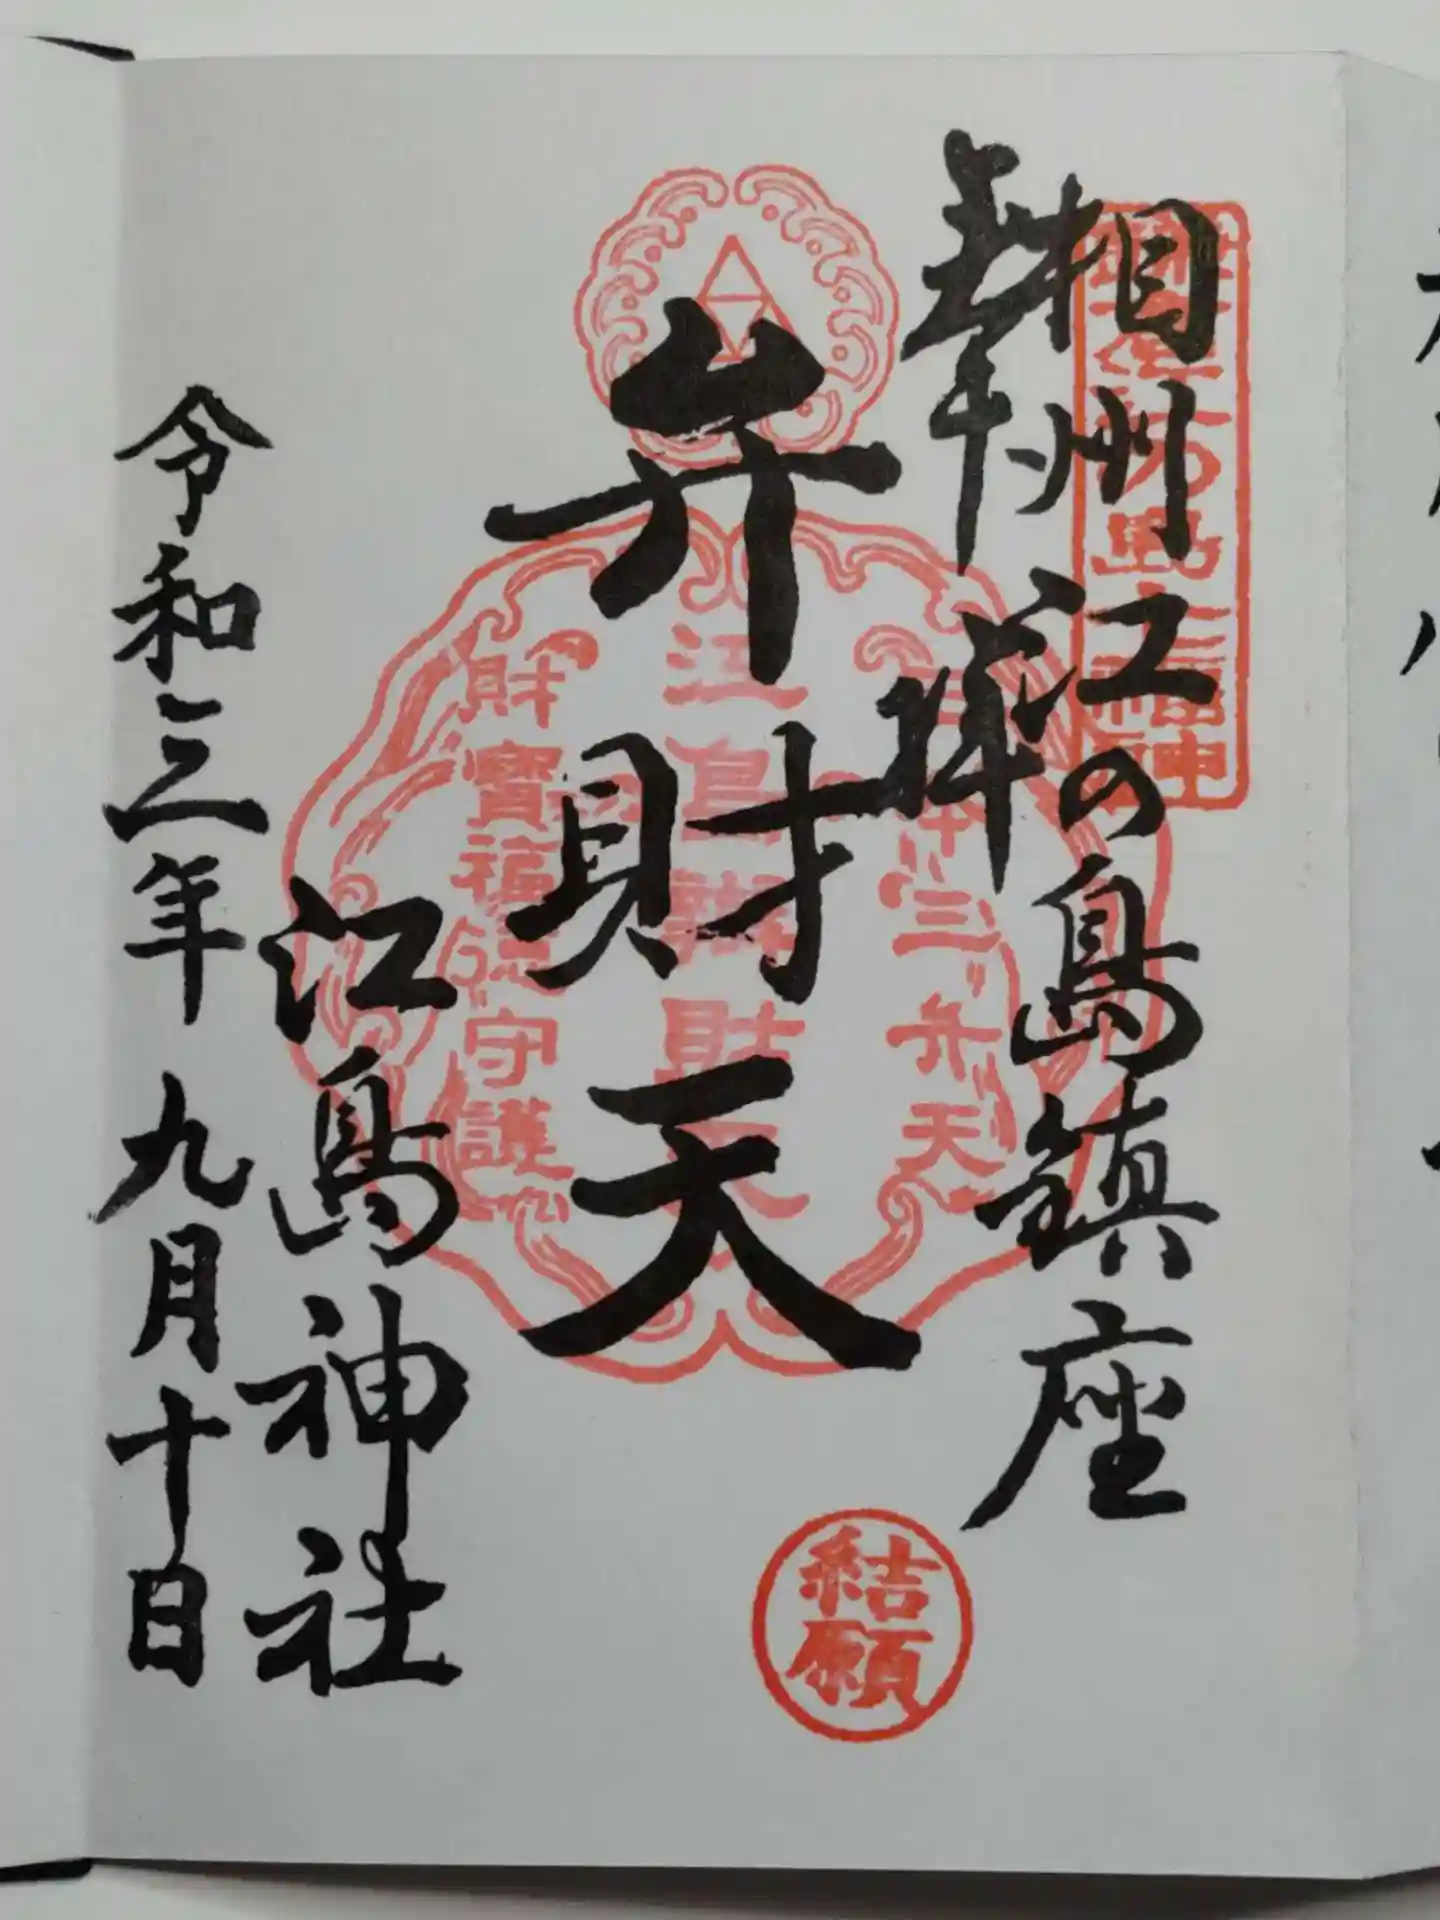 相州江の島鎮座
奉拝
弁財天
江島神社
令和三年九月十日
日本三弁天
江島辨財天
財寶福徳守護
結願